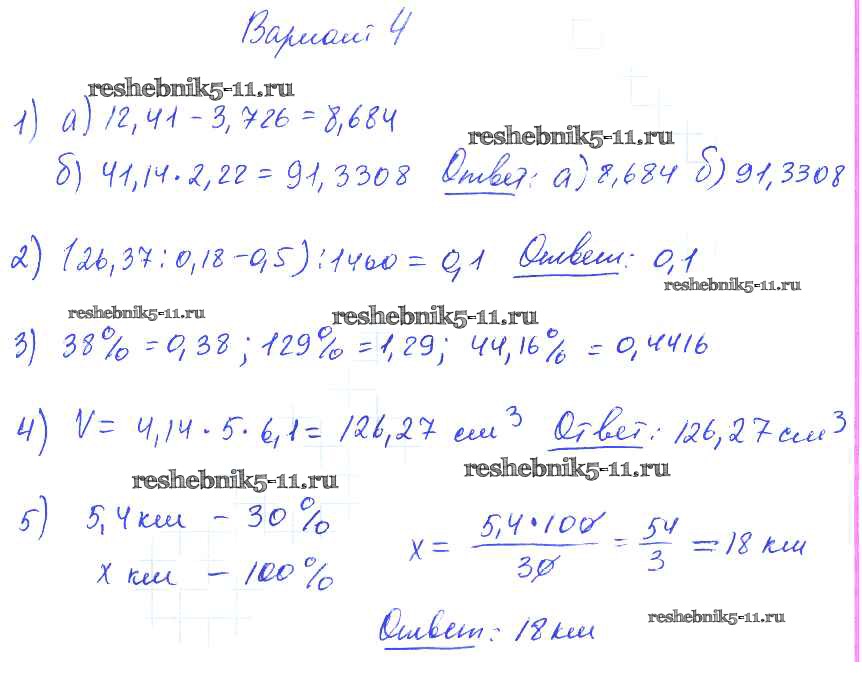 Вариант 4
reshebnik5-11.ru
1) а) 12,41 - 3,726 = 8,684
reshebnik5-11.ru
б) 41,14 · 2,22 = 91,3308 Ответ: а) 8,684 б) 91,3308
2) (26,37 : 0,18 - 0,5) : 1460 = 0,1 Ответ: 0,1
reshebnik5-11.ru
reshebnik5-11.ru
reshebnik5-11.ru
3) 38% = 0,38 ; 129% = 1,29; 44,16% = 0,4416
4) V = 4,14 · 5 · 6,1 = 126,27 см³ Ответ: 126,27 см³
reshebnik5-11.ru
reshebnik5-11.ru
5) 5,4 км - 30%
x км - 100%
x = 5,4 · 100 / 30 = 54 / 3 = 18 км
Ответ: 18 км
reshebnik5-11.ru